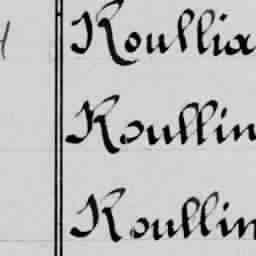 Roullia
Roullin
Roullin